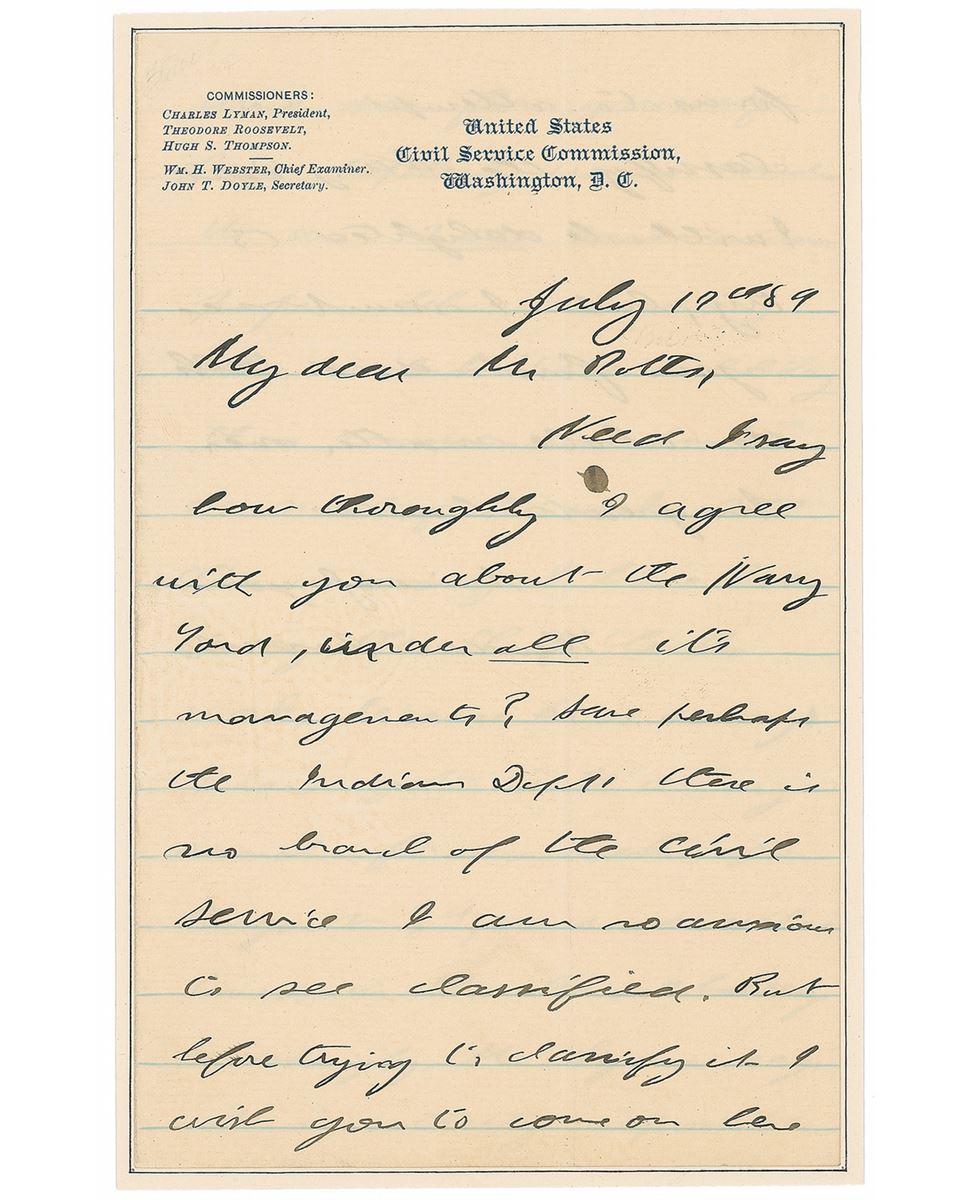 COMMISSIONERS:
CHARLES LYMAN, President,
THEODORE ROOSEVELT,
HUGH S. THOMPSON.
WM. H. WEBSTER, Chief Examiner.
JOHN T. DOYLE, Secretary.
United States
Civil Service Commission,
Washington, D. C.
July 17th 89
My dear Mr Potts,
Need I say
how thoroughly I agree
with you about the Navy
Yard, under all it's
managements? Save perhaps
the Indian Dept there is
no branch of the civil
service I am so anxious
to see classified. But
before trying to classify it I
wish you to come on here